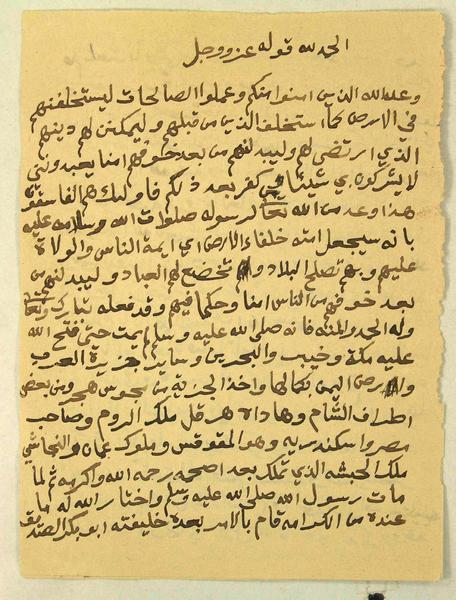 الحمد لله قوله عز وجل
وعد الله الذين امنوا منكم وعملوا الصالحات ليستخلفنهم
في الارض كما استخلف الذين من قبلهم وليمكنن لهم دينهم
الذي ارتضى لهم وليبدلنهم من بعد خوفهم امنا يعبدونني
لا يشركون بي شيئا ومن كفر بعد ذلك فاوليك هم الفاسقون
هذا وعد من الله تعالى لرسوله صلوات الله وسلامه عليه
بانه سيجعل امته خلفاء الارض اي ايمة الناس والولاة
عليهم وبهم تصلح البلاد و تخضع لهم العباد وليبدلنهم من
بعد خوفهم من الناس امنا وحكما فيهم وقد فعله تبارك وتعالى
وله الحمد والمنه فانه صلى الله عليه وسلم لم يمت حتى فتح الله
عليه مكة وخيبر والبحرين وساير جزيرة العرب
وارض اليمن بكمالها واخذ الجزية من مجوس هجر ومن بعض
اطراف الشام وهاداه هرقل ملك الروم وصاحب
مصر واسكندريه وهو المقوقس وملوك عمان والنجاشي
ملك الحبشه الذي تملك بعد اصحمه رحمه الله واكرمه ثم لما
مات رسول الله صلى الله عليه وسلم واختار الله له ما
عنده من الكرامه قام بالامر بعده خليفته ابو بكر الصديق